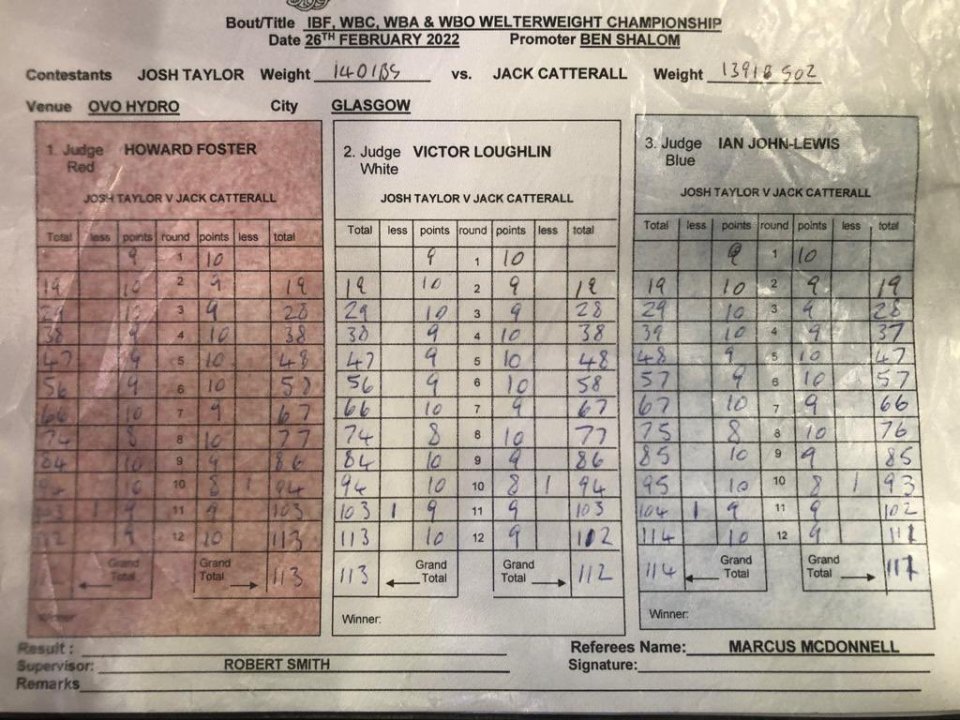 Bout/Title IBF, WBC, WBA & WBO WELTERWEIGHT CHAMPIONSHIP
Date 26TH FEBRUARY 2022 Promoter BEN SHALOM
Contestants JOSH TAYLOR Weight 140lBS vs. JACK CATTERALL Weight 139lB 5OZ
Venue OVO HYDRO City GLASGOW
1. Judge HOWARD FOSTER
Red
JOSH TAYLOR V JACK CATTERALL
Total less points round points less total
9 1 10
19 10 2 9 19
29 10 3 9 28
38 9 4 10 38
47 9 5 10 48
56 9 6 10 58
66 10 7 9 67
74 8 8 10 77
84 10 9 9 86
94 10 10 8 1 94
103 1 9 11 9 103
112 9 12 10 113
Grand Total Grand Total 113
Winner:
2. Judge VICTOR LOUGHLIN
White
JOSH TAYLOR V JACK CATTERALL
Total less points round points less total
9 1 10
19 10 2 9 19
29 10 3 9 28
38 9 4 10 38
47 9 5 10 48
56 9 6 10 58
66 10 7 9 67
74 8 8 10 77
84 10 9 9 86
94 10 10 8 1 94
103 1 9 11 9 103
113 10 12 9 112
113 Grand Total Grand Total 112
Winner:
3. Judge IAN JOHN-LEWIS
Blue
JOSH TAYLOR V JACK CATTERALL
Total less points round points less total
9 1 10
19 10 2 9 19
29 10 3 9 28
39 10 4 9 37
48 9 5 10 47
57 9 6 10 57
67 10 7 9 66
75 8 8 10 76
85 10 9 9 85
95 10 10 8 1 93
104 1 9 11 9 102
114 10 12 9 111
114 Grand Total Grand Total 111
Winner:
Result : Referees Name: MARCUS MCDONNELL
Supervisor: ROBERT SMITH Signature:
Remarks